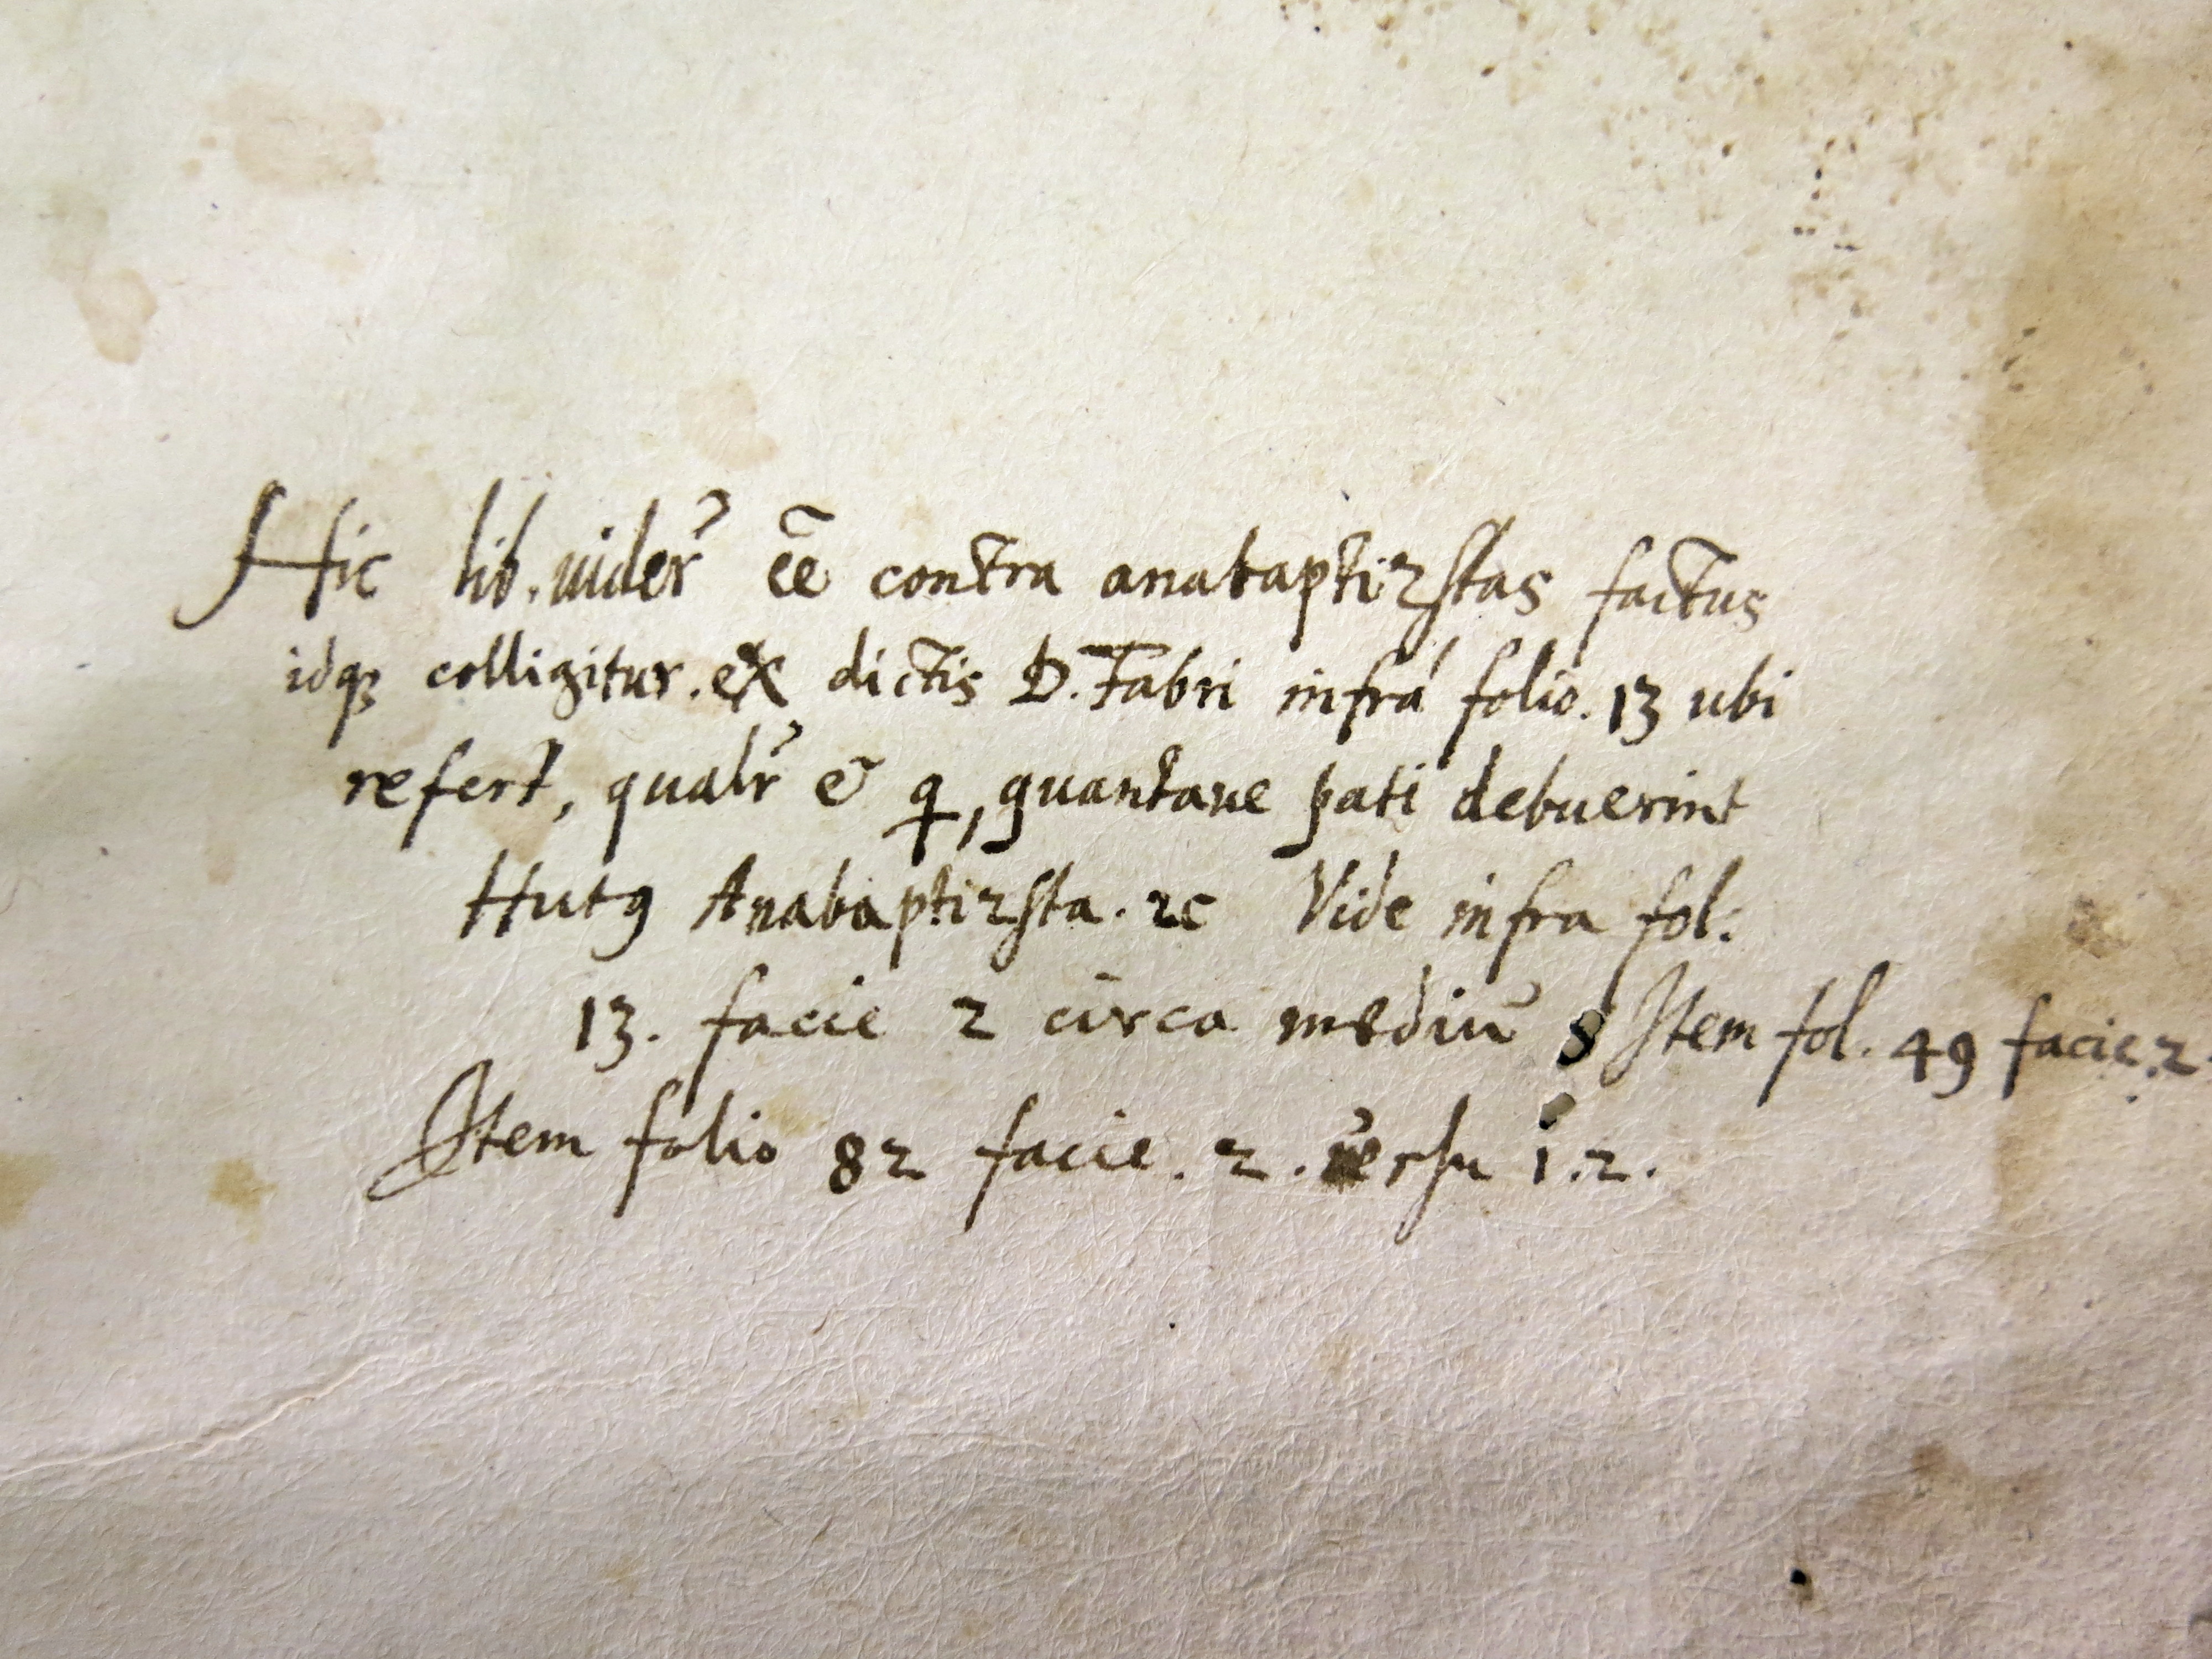 Hic lib. uider̉ ēē contra anabaptirstas factus
idqꝫ colligitur. ex dictis D. Fabri infrá folio. 13 ubi
refert, qualr̉ & q, quantaue pati debuerint
Hutꝰ Anabaptirsta. ꝛc Vide infra fol:
13. facie 2 circa mediū Item fol. 49 facie. 2.
Item folio 82 facie. 2. uersu 1.2.